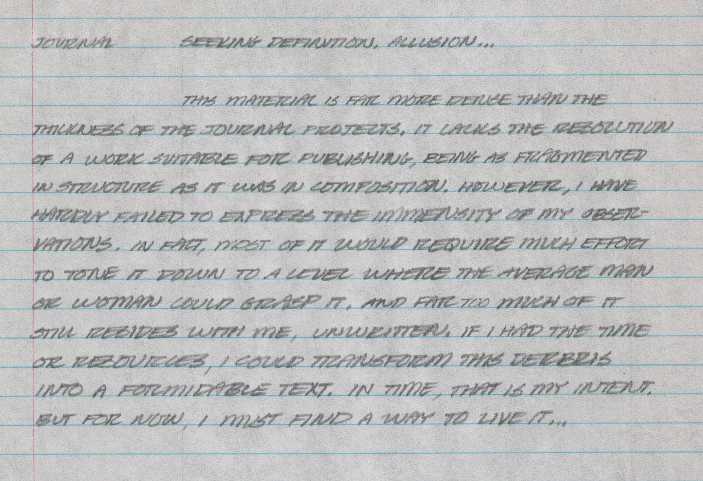 JOURNAL SEEKING DEFINITION, ALLUSION...
THIS MATERIAL IS FAR MORE DENSE THAN THE
THICKNESS OF THE JOURNAL PROJECTS. IT LACKS THE RESOLUTION
OF A WORK SUITABLE FOR PUBLISHING, BEING AS FRAGMENTED
IN STRUCTURE AS IT WAS IN COMPOSITION. HOWEVER, I HAVE
HARDLY FAILED TO EXPRESS THE IMMENSITY OF MY OBSER-
VATIONS. IN FACT, MOST OF IT WOULD REQUIRE MUCH EFFORT
TO TONE IT DOWN TO A LEVEL WHERE THE AVERAGE MAN
OR WOMAN COULD GRASP IT. AND FAR TOO MUCH OF IT
STILL RESIDES WITH ME, UNWRITTEN. IF I HAD THE TIME
OR RESOURCES, I COULD TRANSFORM THIS DERBRIS
INTO A FORMIDABLE TEXT. IN TIME, THAT IS MY INTENT.
BUT FOR NOW, I MUST FIND A WAY TO LIVE IT...